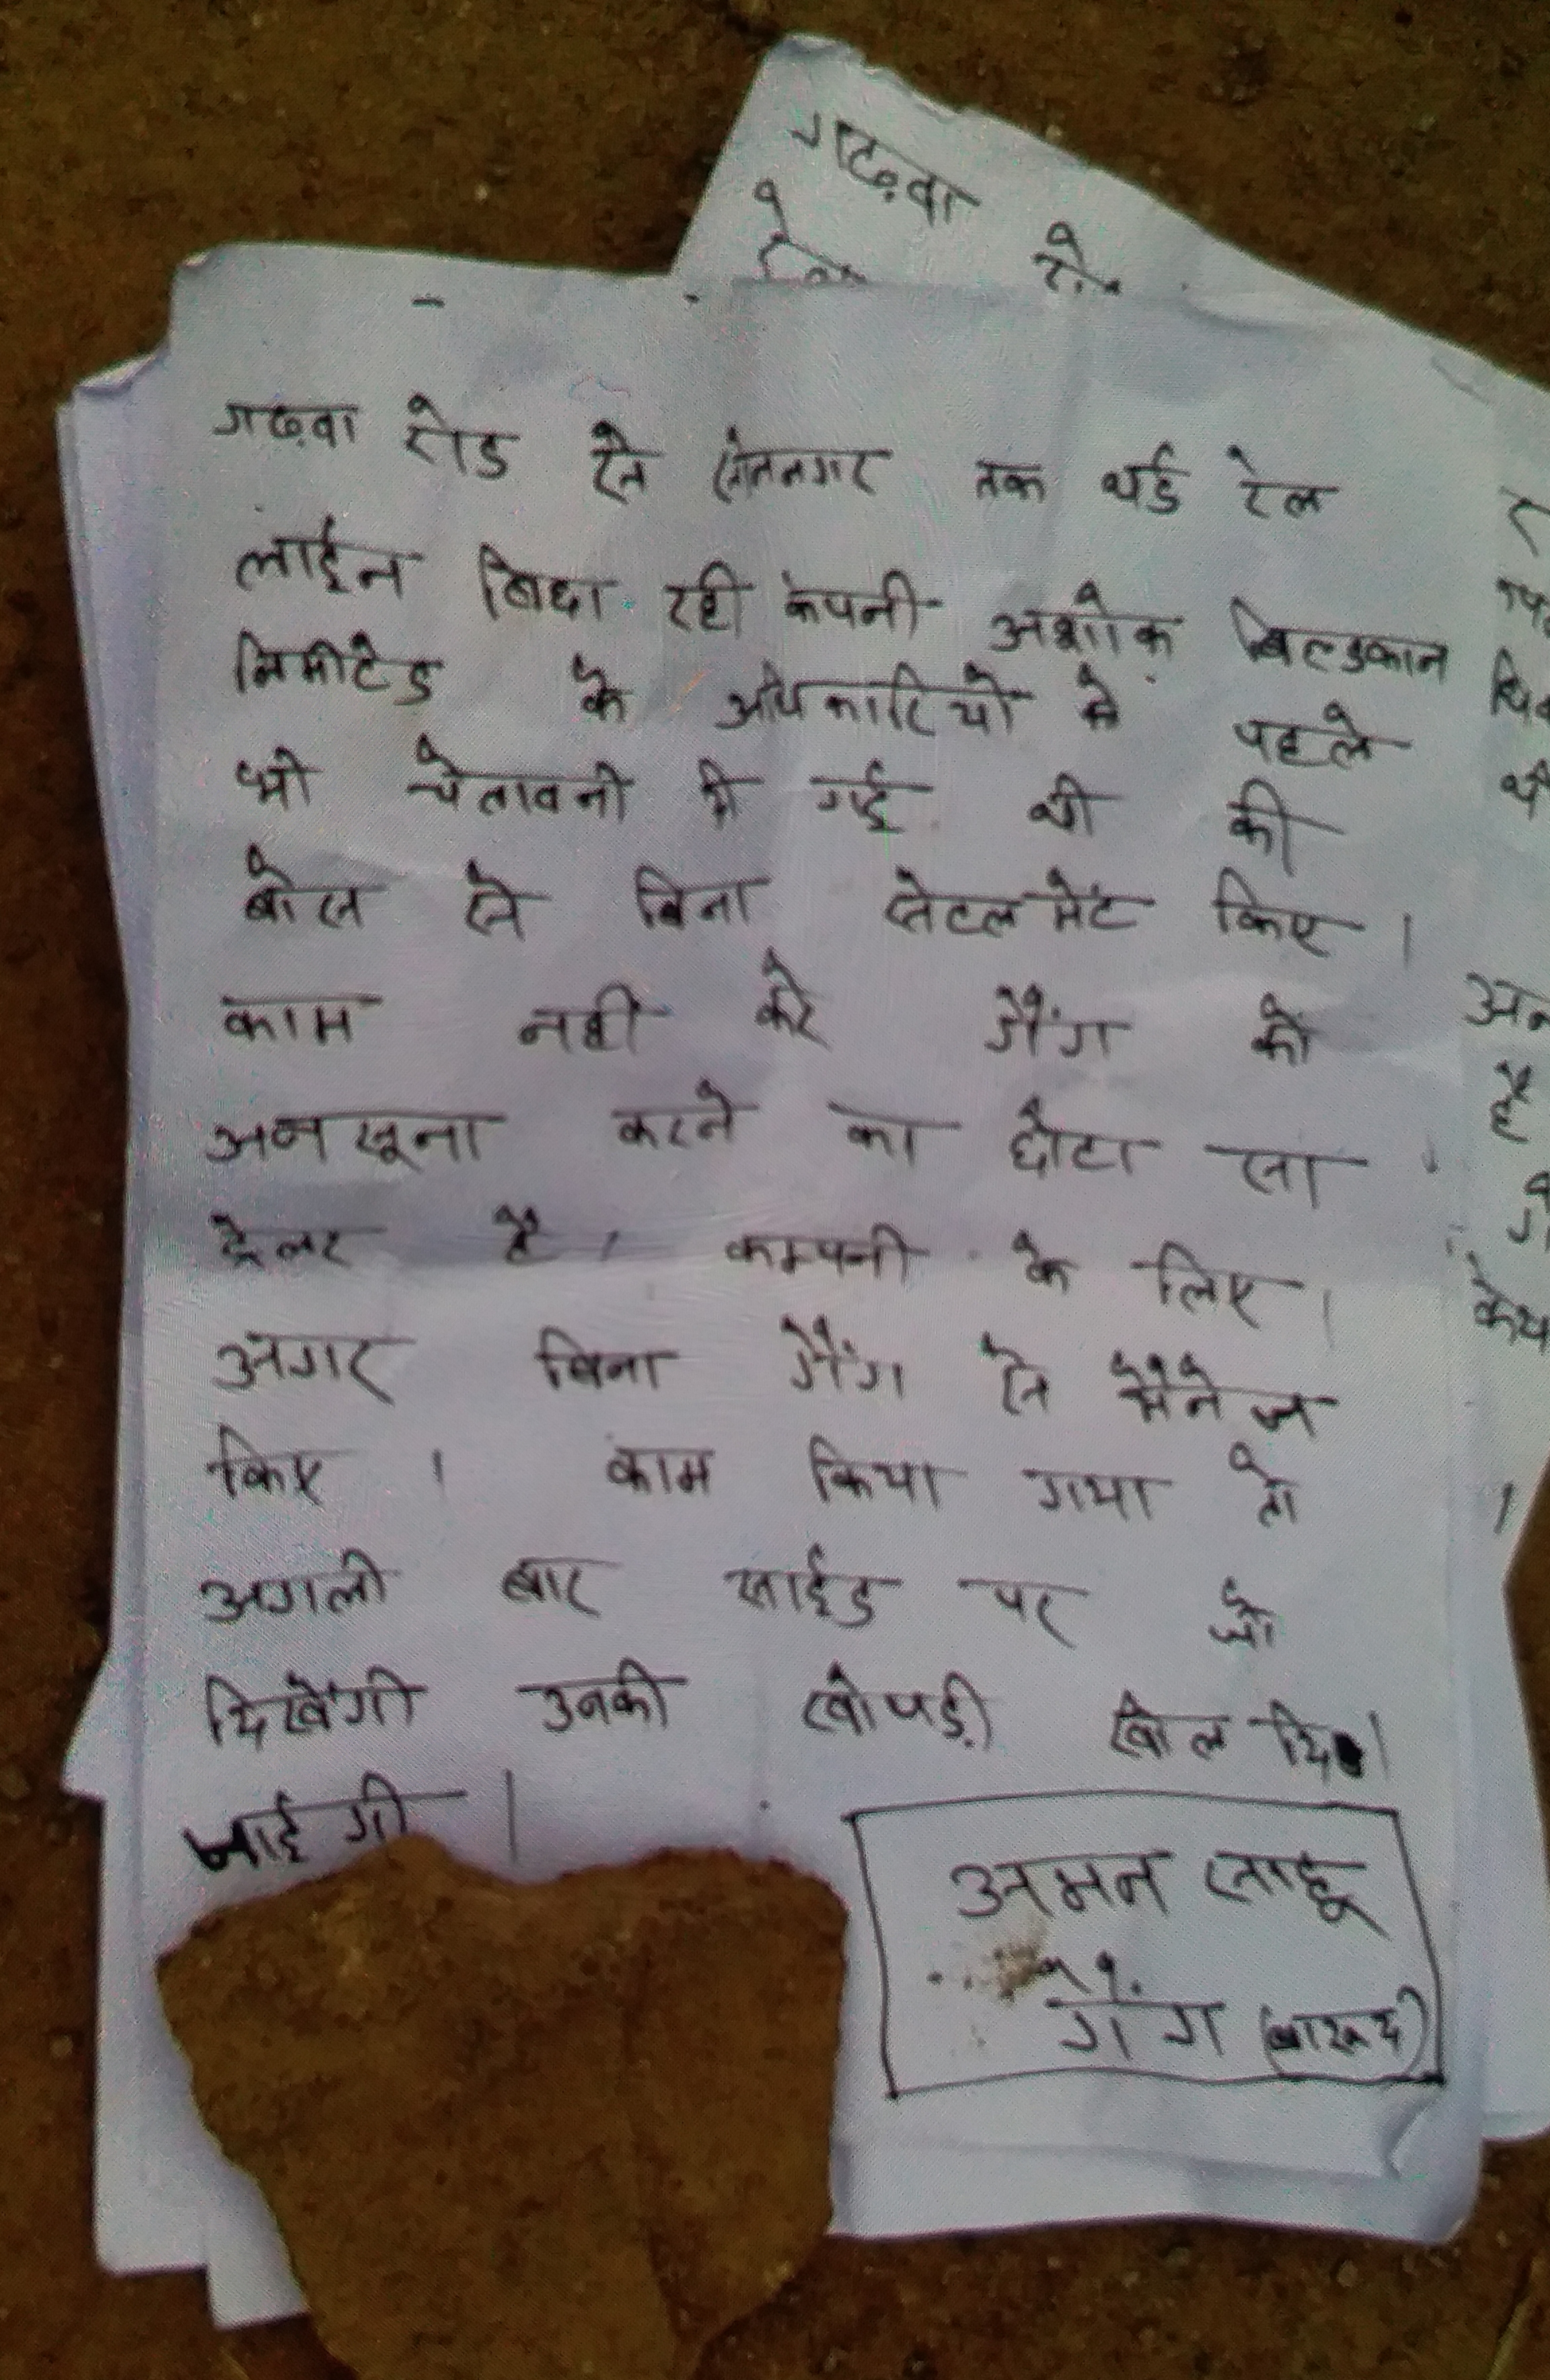 गढ़वा
गढ़वा रोड से सोननगर तक थर्ड रेल
लाईन बिछा रही कंपनी अशोक बिल्डकान
लिमीटेड के अधिकारियो को पहले
भी चेतावनी दी गई थी की
बोस से बिना सेटलमेंट किए।
काम नही करे गैंग को
अनसूना करने का छोटा सा
ट्रेलर है। कम्पनी के लिए।
अगर बिना गैंग से मैनेज
किए । काम किया गया तो
अगली बार साईड पर जो
दिखेंगी उनकी खोपड़ी खोल दि
जाई गी ।
अमन साहू
गैंग